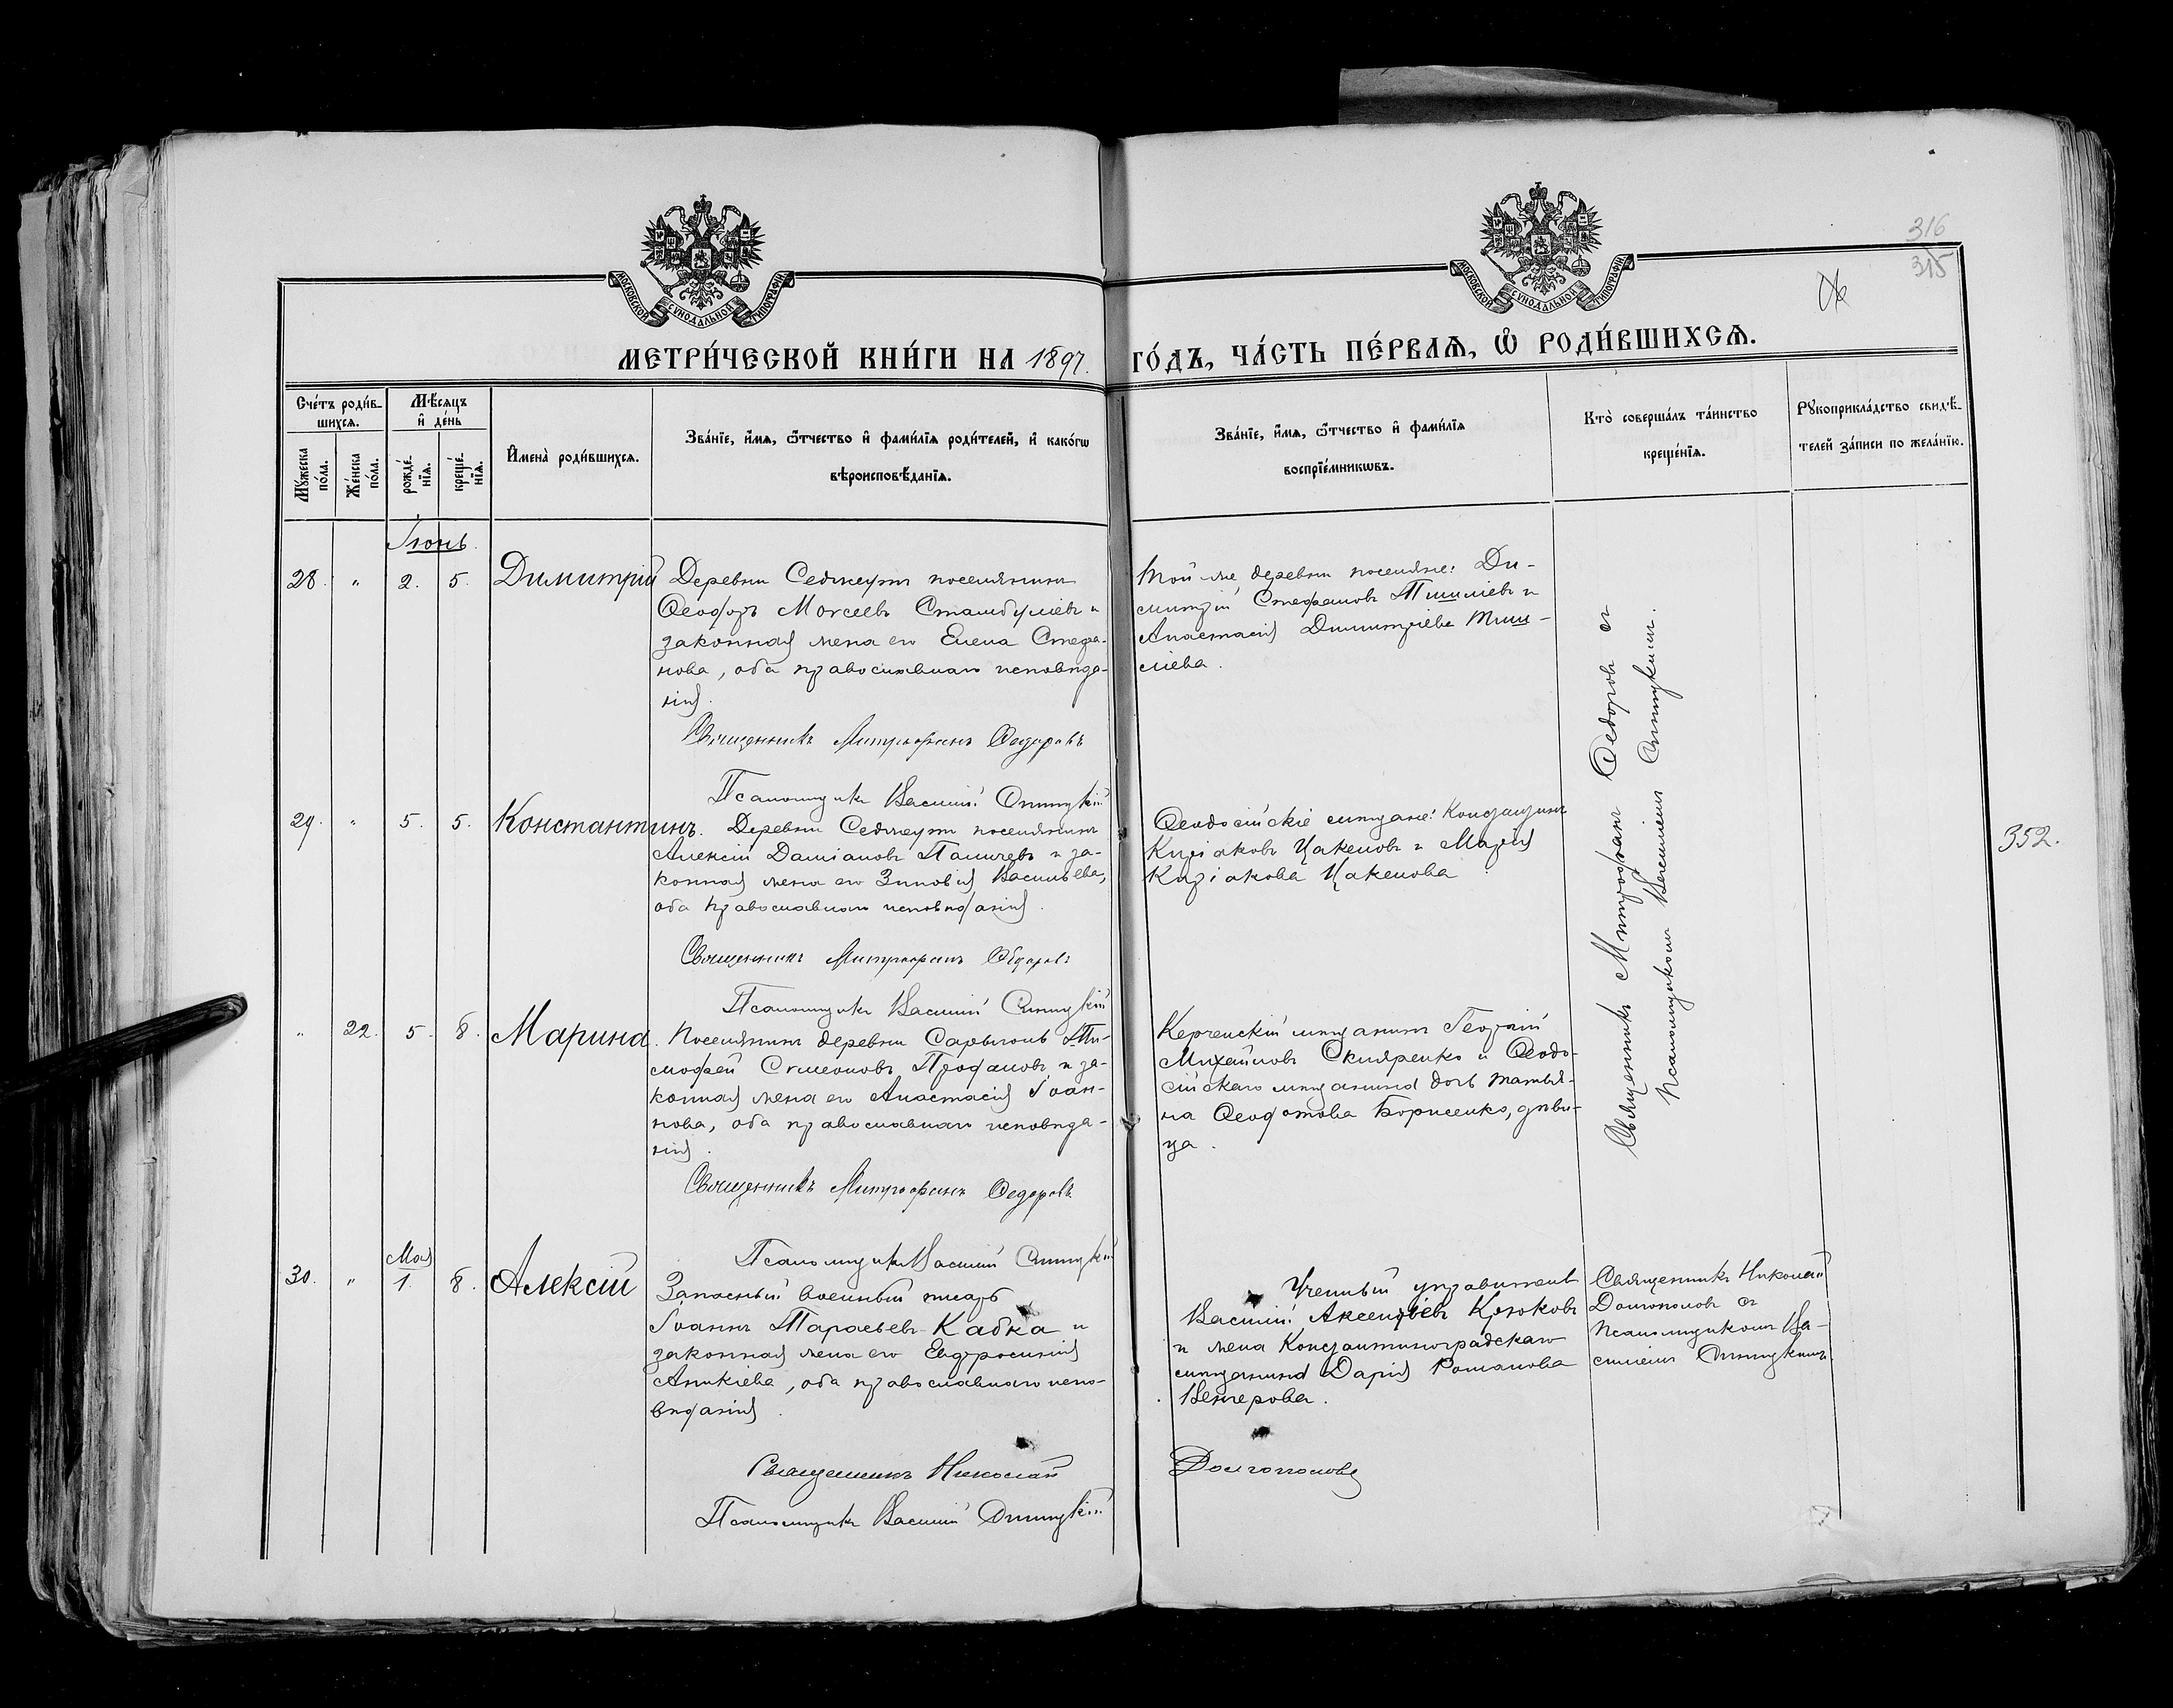 316
315
МОСКОВСКОЙ СУНОДАЛЬНОЙ ТИПОГРАФІИ
МОСКОВСКОЙ СУНОДАЛЬНОЙ ТИПОГРАФІИ
МЕТРИ́ЧЕСКОЙ КНИ́ГИ НА 1897. ГО́ДЪ, ЧА́СТЬ ПЕ́РВАЯ, Ѡ҆ РОДИ́ВШИХСЯ.
Сче́тъ роди́в-
шихся.
Мꙋ́жеска по́ла.
Же́нска по́ла.
Мѣ́сяцъ
и҆ де́нь
рожде́-
нія.
креще́-
нія.
И҆мена̀ роди́вшихся.
Зва́ніе, и҆́мя, ѻ҆́тчество и҆ фами́лія роди́телей, и҆ како́гѡ
вѣроисповѣ́данія.
Зва́ніе, и҆́мя, ѻ҆́тчество и҆ фами́лія
воспріе́мникѡвъ.
Кто̀ соверша́лъ та́инство
креще́нія.
Рꙋкоприкла́дство свидѣ́-
телей за́писи по жела́нію.
Іюнь.
28. " 2. 5. Димитрій
Деревни Седжеутъ поселянинъ
Ѳеодоръ Моѵсеевъ Стамбулiевъ и
законная жена его Елена Стефа-
нова, оба православнаго исповѣда-
нія.
Священникъ Митрофанъ Ѳедоровъ
Псаломщикъ Василій
Той же деревни поселяне: Ди-
митрій Стефановъ и
Анастасія Димитріева
29. " 5. 5. Константинъ.
Деревни Седжеутъ поселянинъ
Алексій Даміановъ и за-
конная жена его Зиновія Васильева,
оба православнаго исповѣданія.
Священникъ Митрофанъ Ѳедоровъ
Псаломщикъ Василій
Ѳеодосійскіе мѣщане: Константинъ
Киріаковъ Цакеловъ и Марія
Киріакова Цакелова
352.
" 22. 5. 8. Марина.
Поселянинъ деревни Сарыголь Ти-
мофей Симеоновъ и за-
конная жена его Анастасія Іоан-
нова, оба православнаго исповѣда-
нія.
Священникъ Митрофанъ Ѳедоровъ
Псаломщикъ Василій
Керченскій мѣщанинъ Георгій
Михайловъ Скляренко и Ѳеодо-
сійскаго мѣщанина дочь Татья-
на Ѳеодотова Борисенко, дѣви-
ца.
Священникъ Митрофанъ Ѳедоровъ съ
псаломщикомъ Василіемъ
Мая
30. " 1. 8. Алексій
Запасный военный писарь
Іоаннъ Тарасьевъ Кабка и
законная жена его Евфросинія
Аникіева, оба православнаго испо-
вѣданія.
Священникъ Николай Долгополовъ
Псаломщикъ Василій
Ученый управитель
Василій Аксентьевъ Крюковъ
и жена Константиноградскаго
мѣщанина Дарія Романова
Венгерова.
Священникъ Николай
Долгополовъ съ
псаломщикомъ Ва-
силіемъ